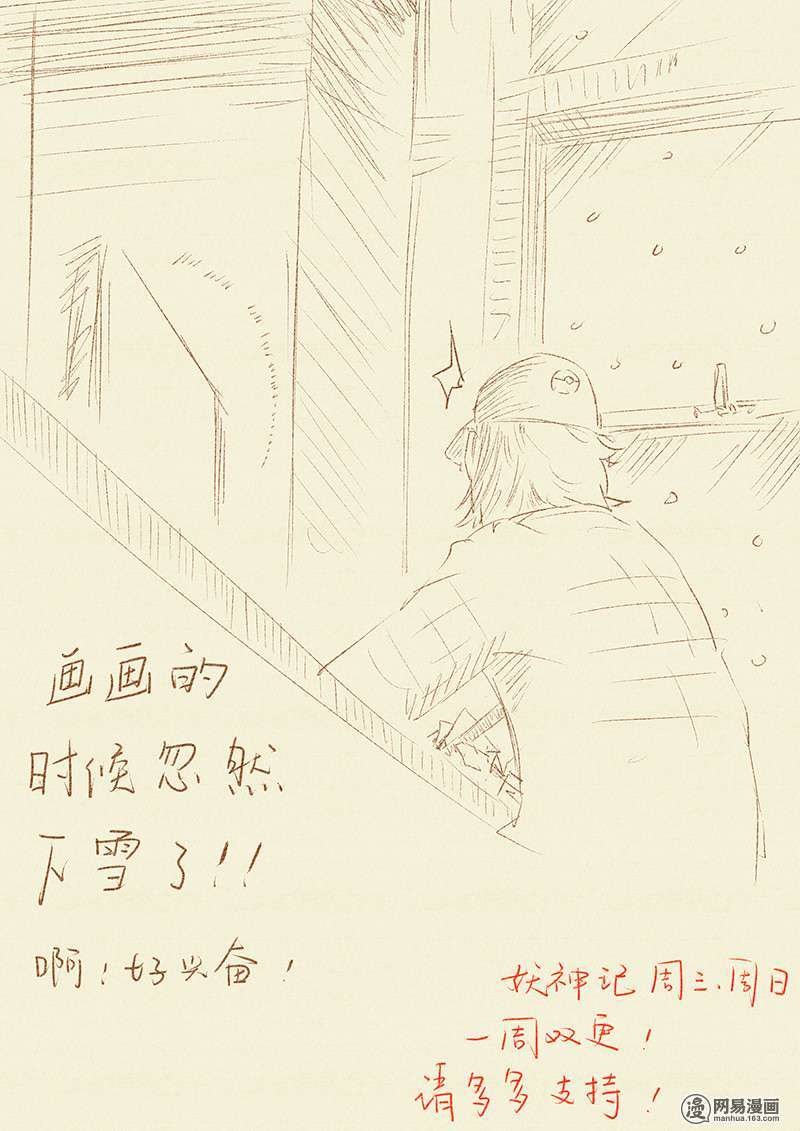 画画的
时候忽然
下雪了!!
啊!好兴奋!
妖神记 周三、周日
一周双更!
请多多支持!
漫 网易漫画
manhua.163.com